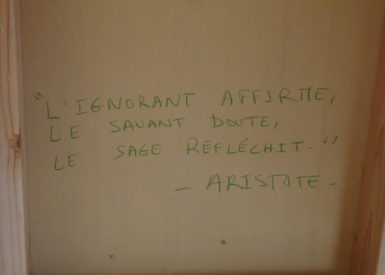 "L'IGNORANT AFFIRME,
LE SAVANT DOUTE,
LE SAGE RÉFLÉCHIT."
- ARISTOTE -